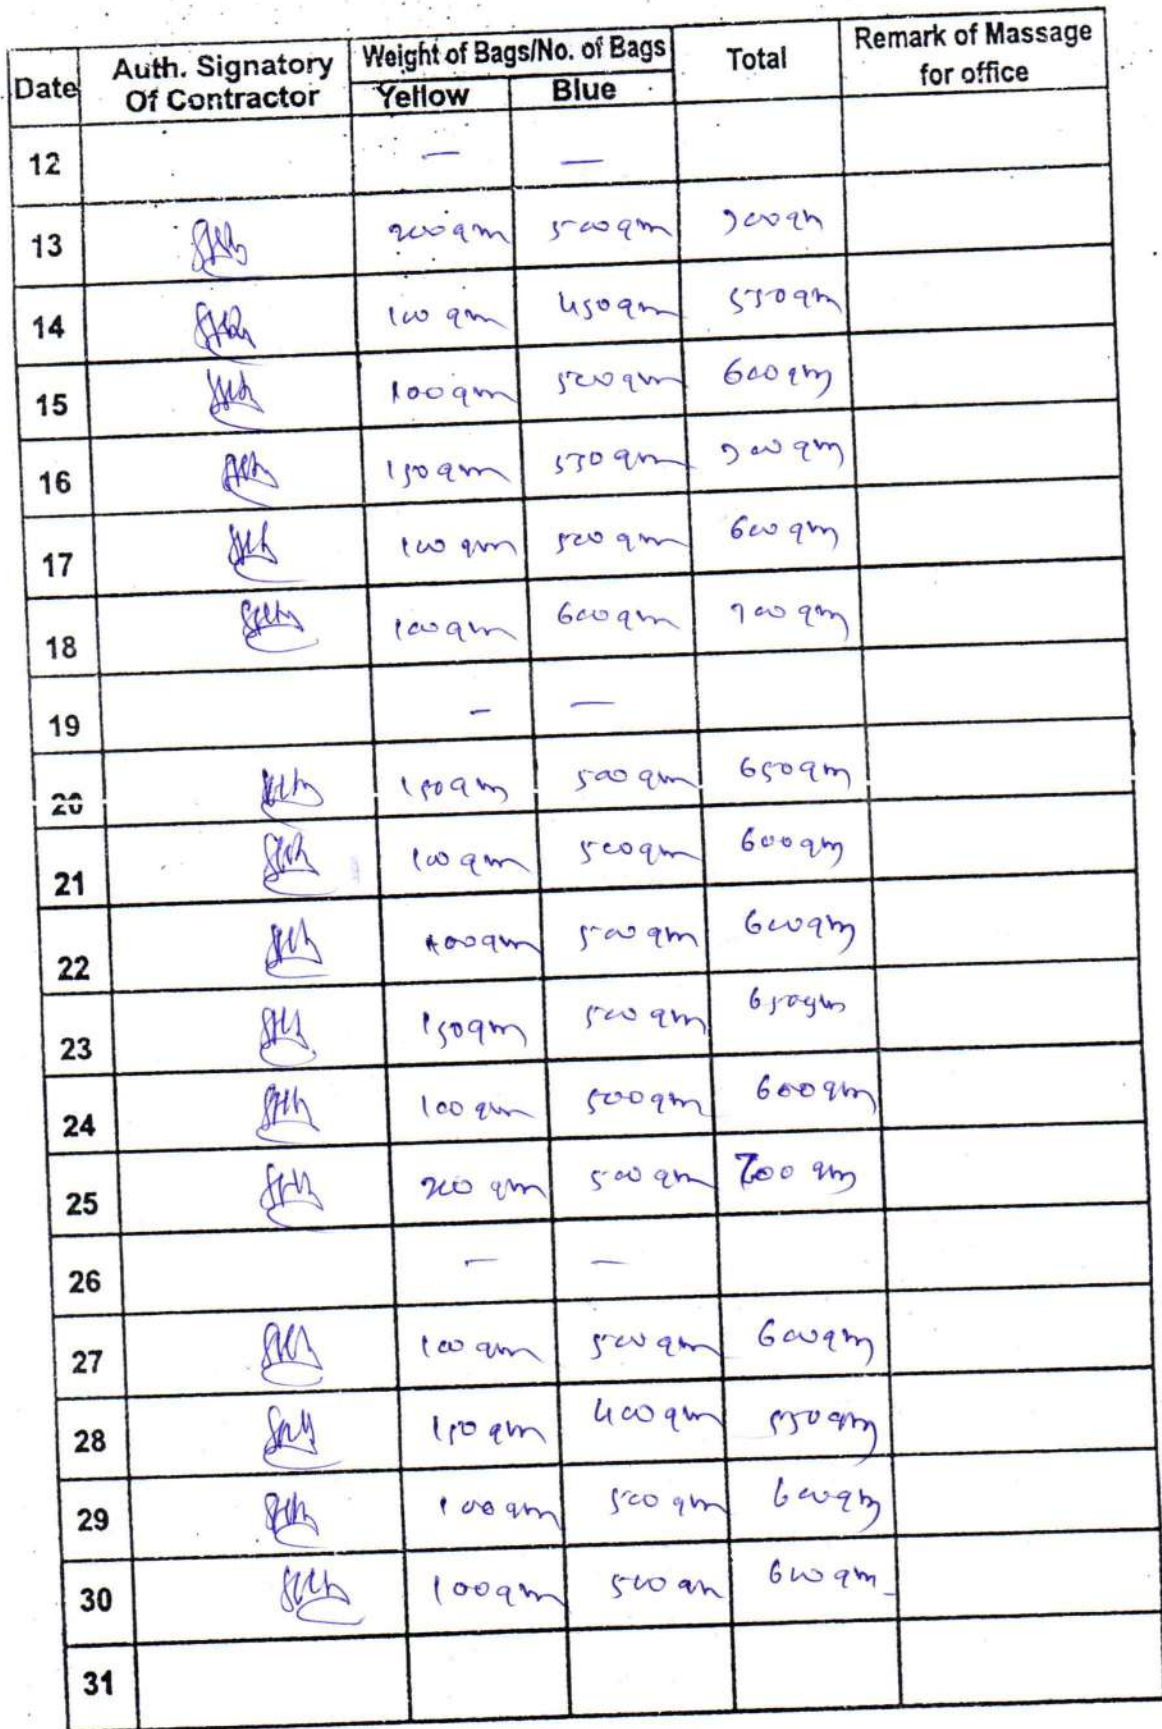 Date Auth. Signatory Of Contractor Weight of Bags/No. of Bags Yellow Blue Total Remark of Massage for office
12 — —
13 200 gm 500 gm 700 gm
14 100 gm 450 gm 550 gm
15 100 gm 500 gm 600 gm
16 150 gm 550 gm 700 gm
17 100 gm 500 gm 600 gm
18 100 gm 600 gm 700 gm
19 - —
20 150 gm 500 gm 650 gm
21 100 gm 500 gm 600 gm
22 100 gm 500 gm 600 gm
23 150 gm 500 gm 650 gm
24 100 gm 500 gm 600 gm
25 200 gm 500 gm 700 gm
26 — —
27 100 gm 500 gm 600 gm
28 150 gm 400 gm 550 gm
29 100 gm 500 gm 600 gm
30 100 gm 500 gm 600 gm
31